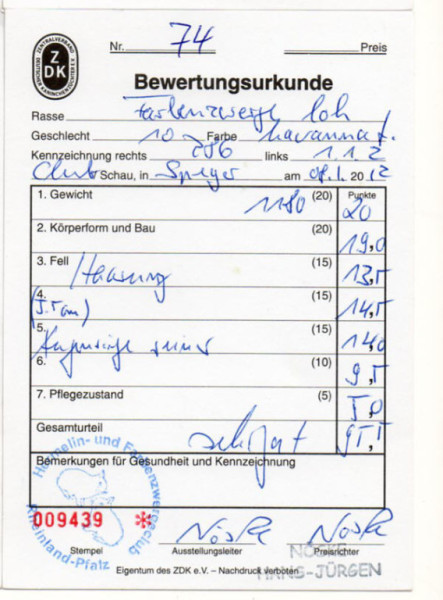 ZENTRALVERBAND DEUTSCHER KANINCHENZÜCHTER E.V.
ZDK
Nr. 74 Preis
Bewertungsurkunde
Rasse Farbenzwerge loh
Geschlecht 1.0 Farbe havannaf.
Kennzeichnung rechts 286 links 1.1.2
Club Schau, in Speyer am 08.1. 2012
1. Gewicht 1180 (20) Punkte 20
2. Körperform und Bau (20) 19,0
3. Fell Haarung (15) 13,5
4. (5.5 cm) (15) 14,5
5. (15) 14,0
6. (10) 9,5
7. Pflegezustand (5) 5,0
Gesamturteil sehr gut 95,5
Bemerkungen für Gesundheit und Kennzeichnung
Hermelin- und Farbenzwergeclub
Rheinland-Pfalz
009439 *
Nöske Nöske
Stempel Ausstellungsleiter Preisrichter
HANS-JÜRGEN
Eigentum des ZDK e.V. – Nachdruck verboten